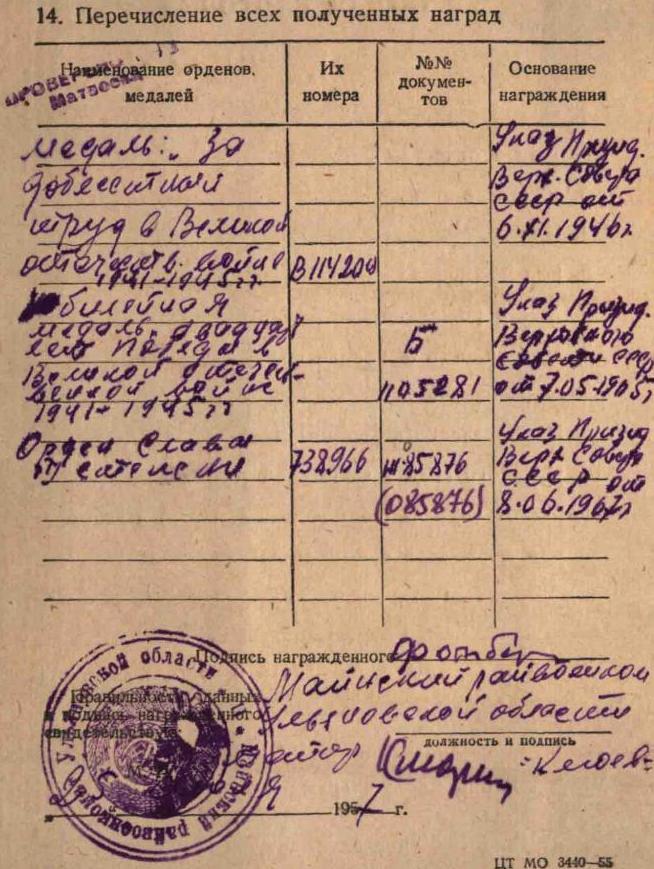 14. Перечисление всех полученных наград
Наименование орденов, медалей
Их номера
№№ документов
Основание награждения
ПРОВЕРЕНО
Матвеев
медаль: „За
доблесттной
труд в Великой
отечеств. войне
1941-1945 гг
В 114204
Указ Презид.
Верх. Совета
СССР от
6.XI.1946г
Юбилейная
медаль двадцать
лет Победы в
Великой отечест-
венной войне
1941-1945 гг
Б
1105281
Указ Презид.
Верховного
Совета СССР
от 7.05.1965г
Орден Славы
III степени
738966
085876
(085876)
Указ Презид
Верх Совета
СССР от
8.06.1967г
Подпись награжденного
Правильность данных
и подпись награжденного
свидетельствую:
Майнский райвоенком
Ульяновской области
майор
должность и подпись
М. П.
195 7 г.
Ульяновской области
Майнский райвоенкомат
ЦТ МО 3440—55